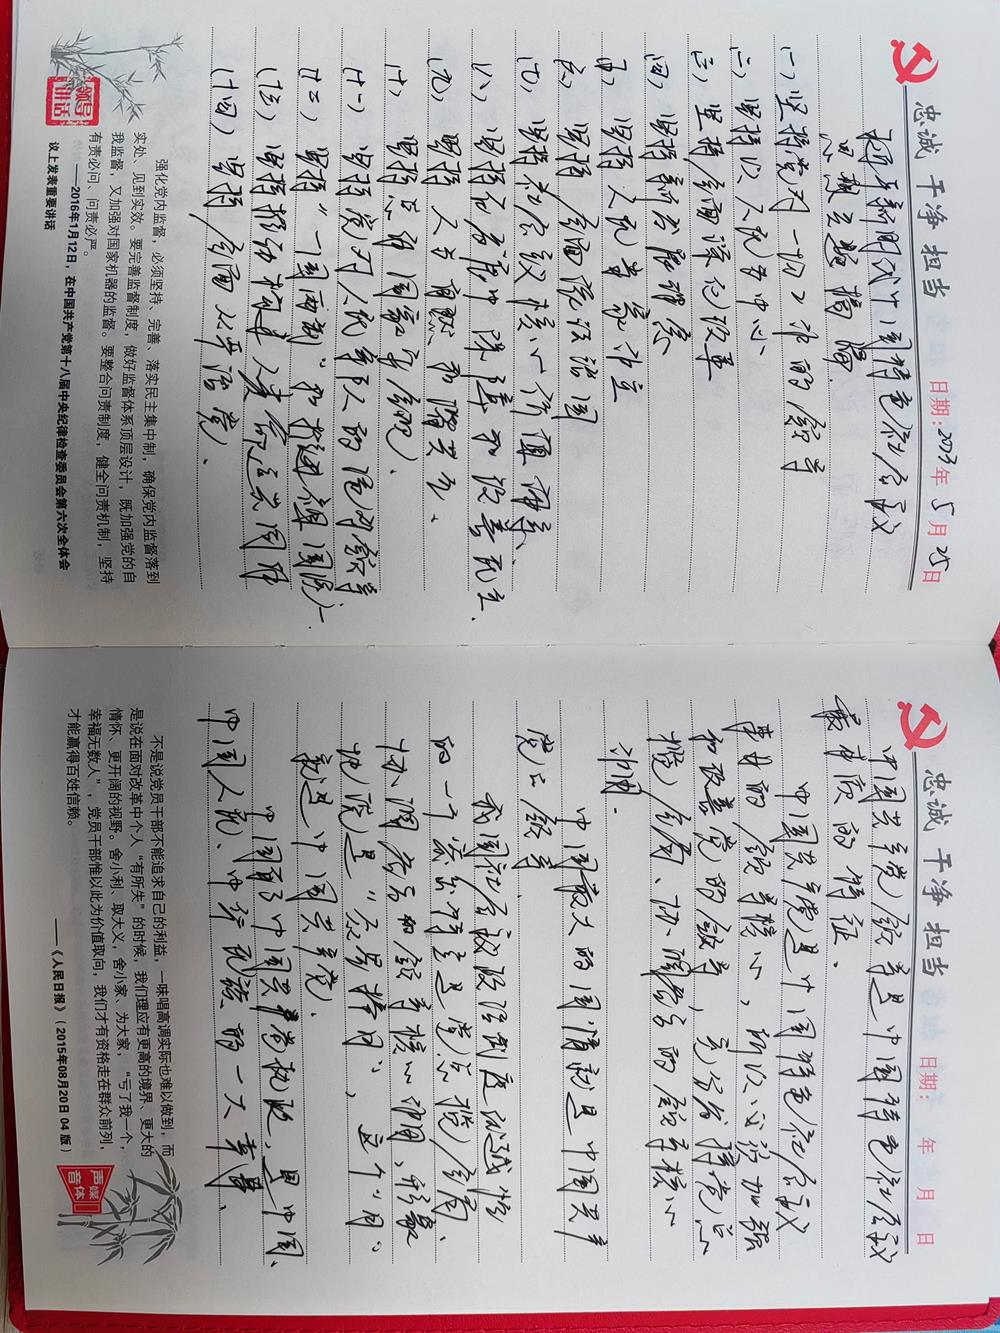 忠诚 干净 担当
日期：2023年5月25日
习近平新时代中国特色社会主义
思想
(一)坚持党对一切工作的领导
(二)坚持以人民为中心
(三)坚持全面深化改革
(四)坚持新发展理念
坚持人民当家作主
坚持全面依法治国
坚持社会主义核心价值体系、
(八)坚持在发展中保障和改善民生、
(九)坚持人与自然和谐共生、
(十)坚持总体国家安全观、
(十一)坚持党对人民军队的绝对领导
(十二)坚持“一国两制”和推进祖国统一、
(十三)坚持推动构建人类命运共同体
(十四)坚持全面从严治党、
强化党内监督，必须坚持、完善、落实民主集中制，确保党内监督落到
实处、见到实效。要完善监督制度，做好监督体系顶层设计，既加强党的自
我监督，又加强对国家机器的监督。要整合问责制度，健全问责机制，坚持
有责必问、问责必严。
——2016年1月12日，在中国共产党第十八届中央纪律检查委员会第六次全体会
议上发表重要讲话
领导讲话
忠诚 干净 担当
日期： 年 月 日
中国共产党领导是中国特色社会主义
最本质的特征、
中国共产党是中国特色社会主义
事业的领导核心，所以必须加强
和改善党的领导，充分发挥党总
揽全局、协调各方的领导核心
作用、
中国最大的国情就是中国共产
党的领导、
我国社会主义政治制度优越性
的一个突出特点是党总揽全局、
协调各方的领导核心作用，形象
地说是“众星捧月”，这个“月”
就是中国共产党、
中国有了中国共产党执政，是中国、
中国人民、中华民族的一大幸事、
不是说党员干部不能追求自己的利益，一味唱高调实际也难以做到，而
是说在面对改革中个人“有所失”的时候，我们理应有更高的境界、更大的
情怀、更开阔的视野。舍小利、取大义，舍小家、为大家，“亏了我一个，
幸福无数人”，党员干部惟以此为价值取向，我们才有资格走在群众前列，
才能赢得百姓信赖。
——《人民日报》（2015年08月20日 04 版）
媒体声音